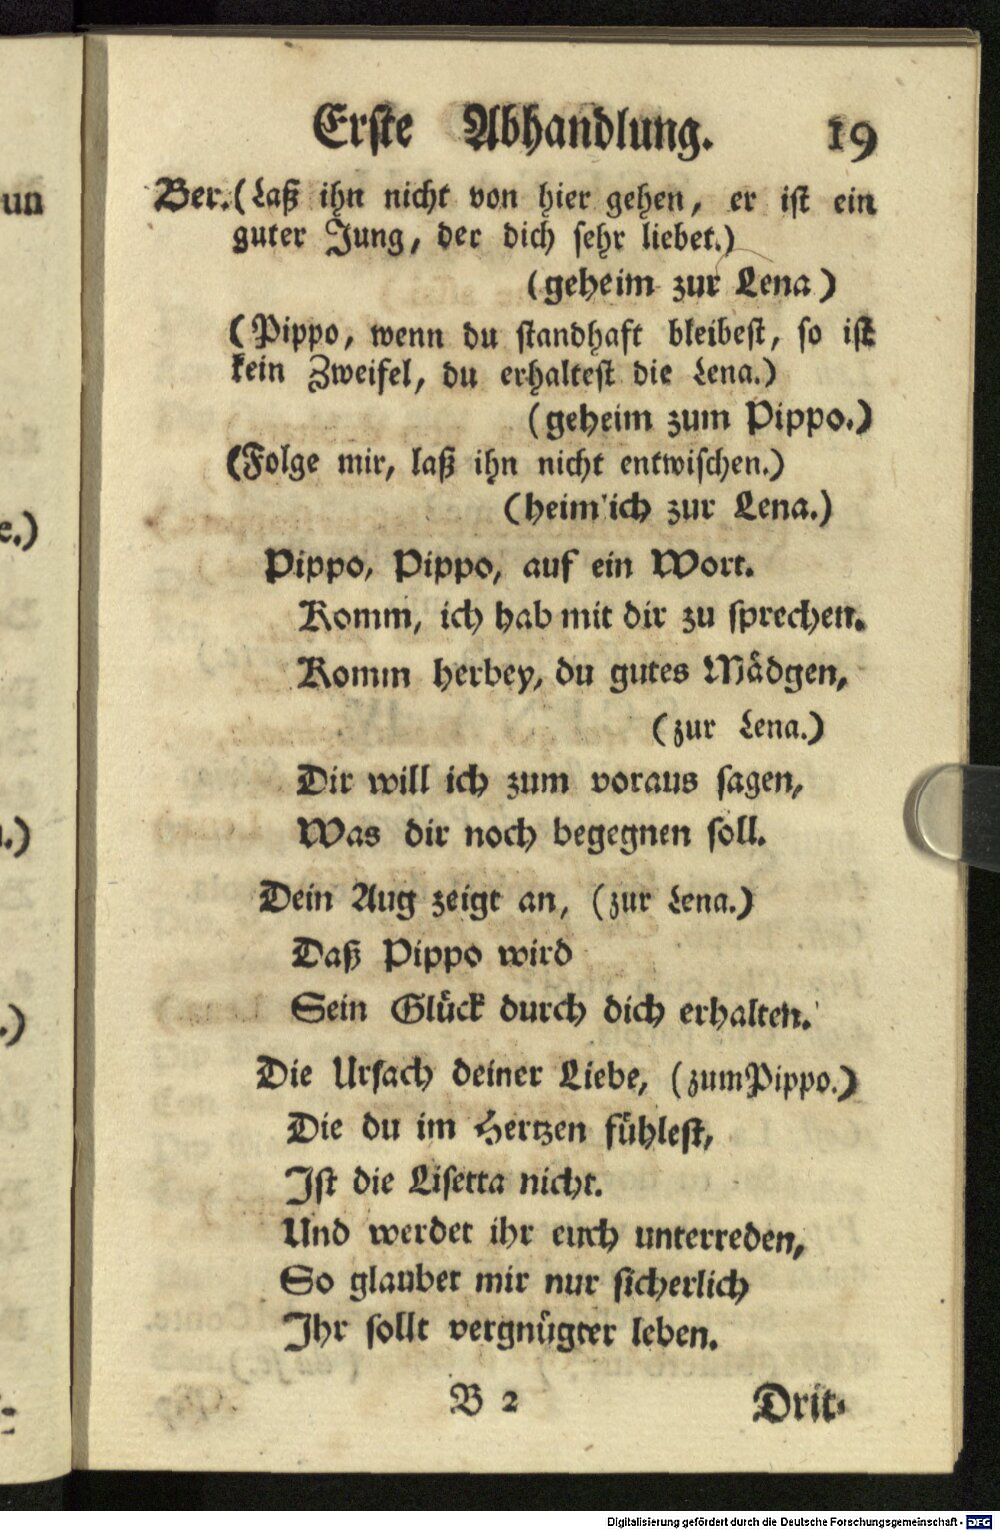 Erste Abhandlung. 19
Ber. (Laß ihn nicht von hier gehen, er ist ein
guter Jung, der dich sehr liebet.)
(geheim zur Lena)
(Pippo, wenn du standhaft bleibest, so ist
kein Zweifel, du erhaltest die Lena.)
(geheim zum Pippo.)
(Folge mir, laß ihn nicht entwischen.)
(heim'ich zur Lena.)
Pippo, Pippo, auf ein Wort.
Komm, ich hab mit dir zu sprechen.
Komm herbey, du gutes Mådgen,
(zur Lena.)
Dir will ich zum voraus sagen,
Was dir noch begegnen soll.
Dein Aug zeigt an, (zur Lena.)
Daß Pippo wird
Sein Glůck durch dich erhalten.
Die Ursach deiner Liebe, (zum Pippo.)
Die du im Hertzen fůhlest,
Ist die Lisetta nicht.
Und werdet ihr euch unterreden,
So glaubet mir nur sicherlich
Ihr sollt vergnůgter leben.
B 2 Drit-
un
e.)
.)
.)
Digitalisierung gefördert durch die Deutsche Forschungsgemeinschaft - DFG